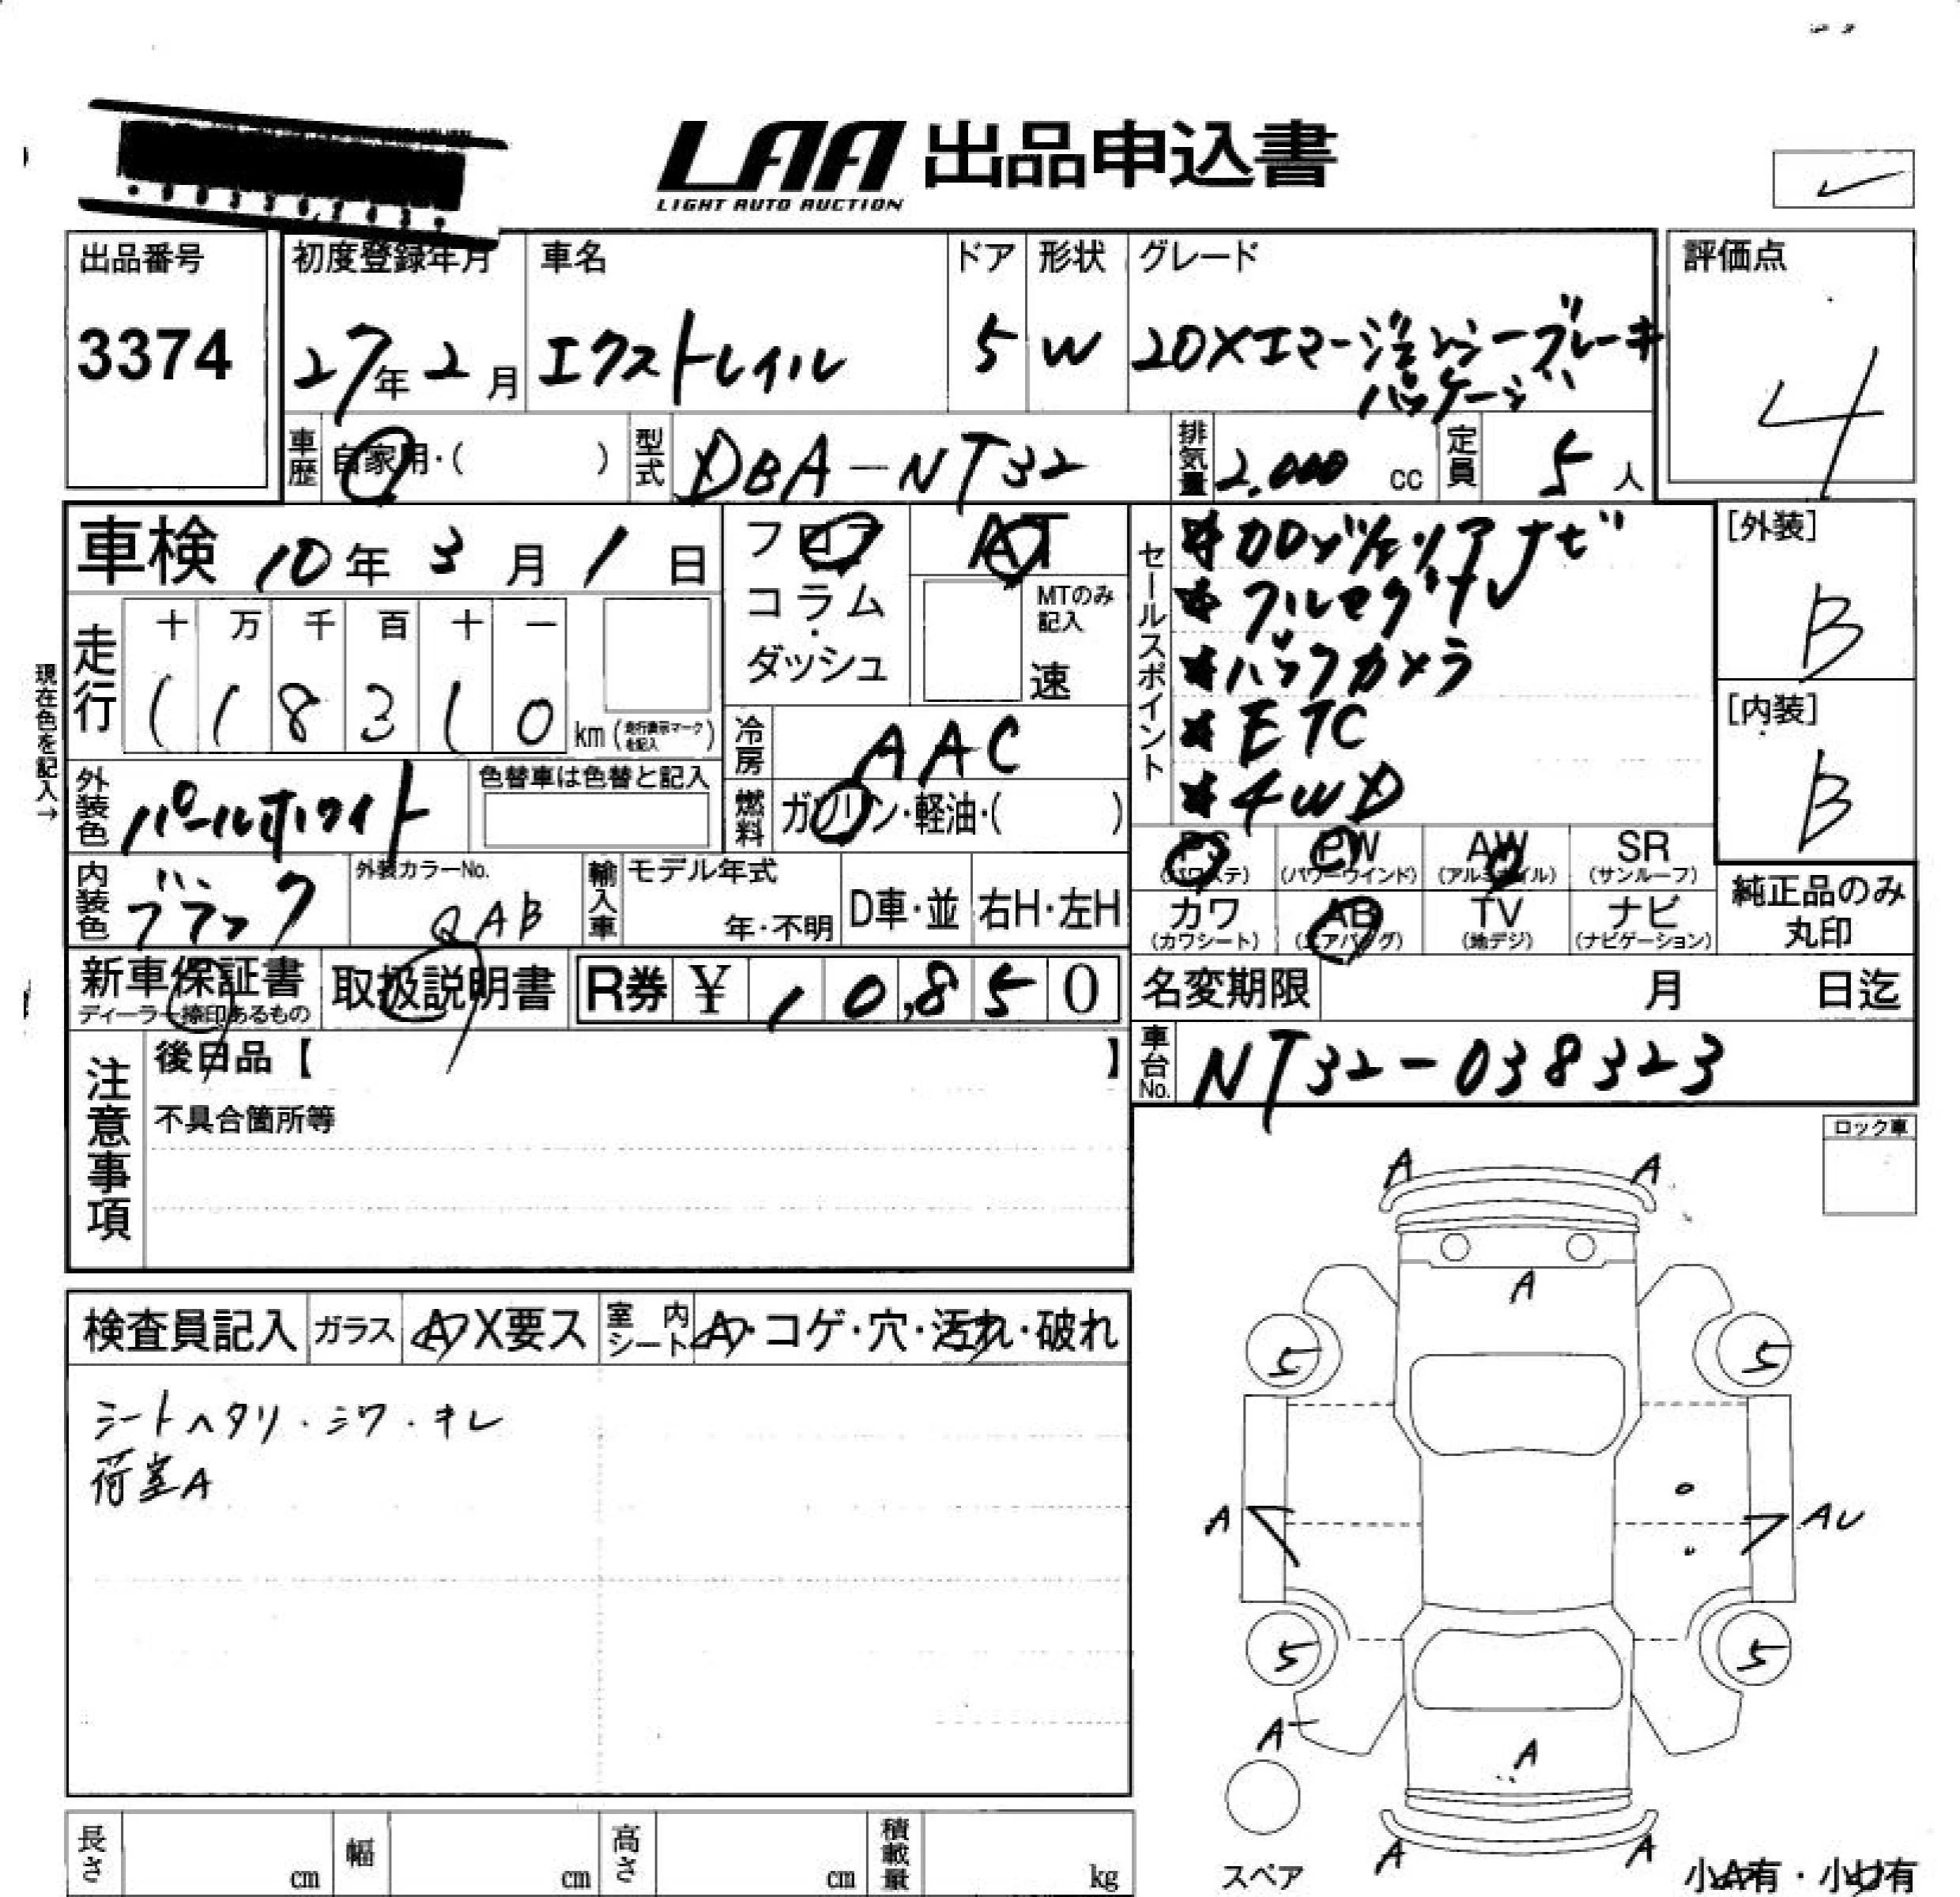 LAA 出品申込書
LIGHT AUTO AUCTION
出品番号
3374
初度登録年月
27年2月
車名
エクストレイル
ドア
5
形状
W
グレード
20Xエマージェンシーブレーキ
パッケージ
評価点
4
車歴 自家用・( )
型式 DBA-NT32
排気量 2,000 cc
定員 5 人
車検 10年3月1日
フロア
コラム・
ダッシュ
AT
MTのみ
記入
速
セールスポイント
*カロッツェリアナビ
*フルセグTV
*バックカメラ
*ETC
*4WD
[外装]
B
[内装]
B
現在色を記入→
走行
十 万 千 百 十 一
1 1 8 3 1 0 km(走行表示マークを記入)
冷房 AAC
外装色 パールホワイト
色替車は色替と記入
燃料 ガソリン・軽油・( )
PS PW AW SR
(パワステ) (パワーウインド) (アルミホイル) (サンルーフ)
カワ AB TV ナビ
(カワシート) (エアバッグ) (地デジ) (ナビゲーション)
純正品のみ
丸印
内装色 ブラック
外装カラーNo.
QAB
輸入車
モデル年式
年・不明
D車・並
右H・左H
新車保証書
ディーラー捺印あるもの
取扱説明書
R券 ¥ 10,850
名変期限 月 日迄
車台No. NT32-038323
注意事項
後日品【 】
不具合箇所等
ロック車
検査員記入
ガラス A X要ス
室内シート A・コゲ・穴・汚れ・破れ
シートヘタリ・シワ・キレ
荷室A
A A
A
5 5
A AU
5 5
A
A
A A
スペア
小A有・小U有
長さ cm
幅 cm
高さ cm
積載量 kg